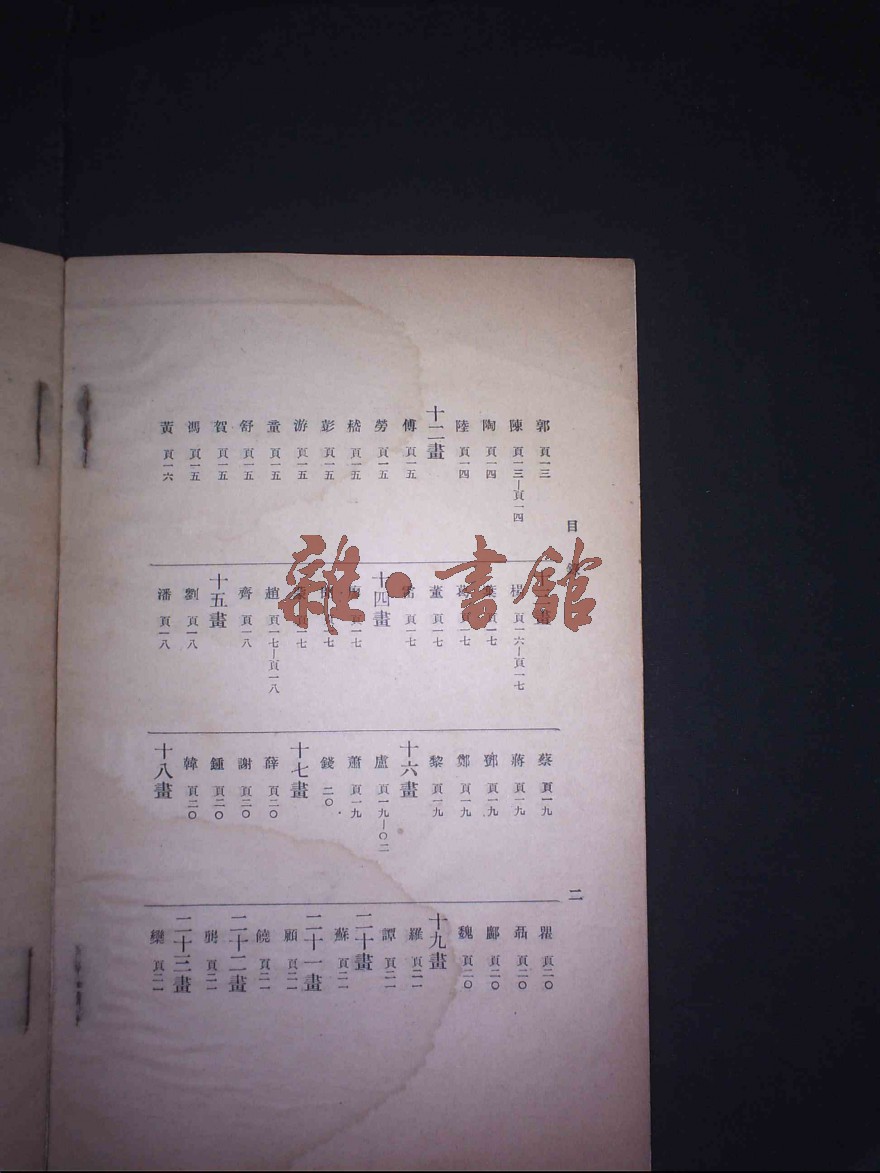 目
二
郭 頁一三
陳 頁一三—頁一四
陶 頁一四
陸 頁一四
十二畫
傅 頁一五
勞 頁一五
嵇 頁一五
彭 頁一五
游 頁一五
童 頁一五
舒 頁一五
賀 頁一五
馮 頁一五
黃 頁一六
十三畫
楊 頁一六—頁一七
葉 頁一七
葛 頁一七
董 頁一七
雷 頁一七
十四畫
頁一七
頁一七
頁一七
趙 頁一七—頁一八
齊 頁一八
十五畫
劉 頁一八
潘 頁一八
蔡 頁一九
蔣 頁一九
鄧 頁一九
鄭 頁一九
黎 頁一九
十六畫
盧 頁一九—〇二
蕭 頁一九
錢 二〇
十七畫
薛 頁二〇
謝 頁二〇
鍾 頁二〇
韓 頁二〇
十八畫
瞿 頁二〇
聶 頁二〇
鄺 頁二〇
魏 頁二〇
十九畫
羅 頁二一
譚 頁二一
二十畫
蘇 頁二一
二十一畫
顧 頁二一
饒 頁二一
二十二畫
龔 頁二一
二十三畫
欒 頁二一
雜·書館